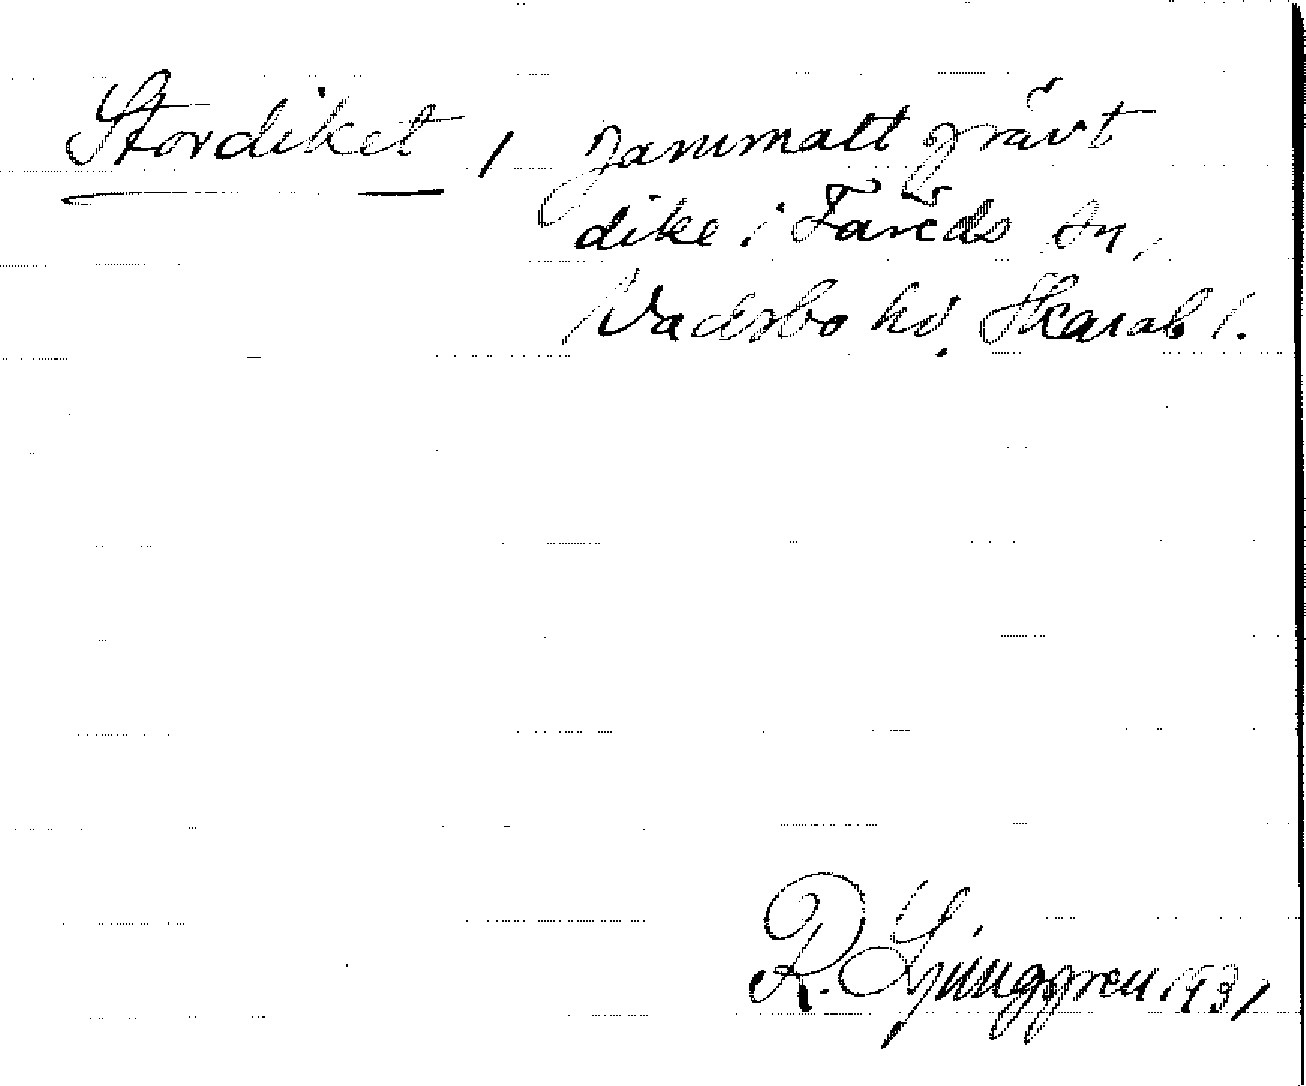 Stordiket, gammalt grävt
dike i Färeds sn,
Vadsbo hd. Skarab l.
R. Ljunggren 1931